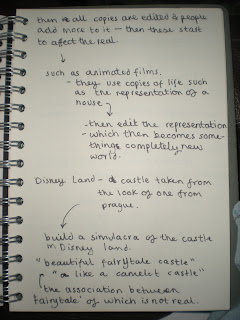 then all copies are edited & people
add more to it — then these start
to affect the real.
such as animated films,
- they use copies of life such
as the representation of a
house
- then edit the representation
- which then becomes some-
thing completely new
world.
Disney Land - a castle taken from
the look of one from
prague.
build a simulacra of the castle
in Disney land.
"beautiful fairytale castle"
"like a camelot castle"
the association between
fairytale' of which is not real.